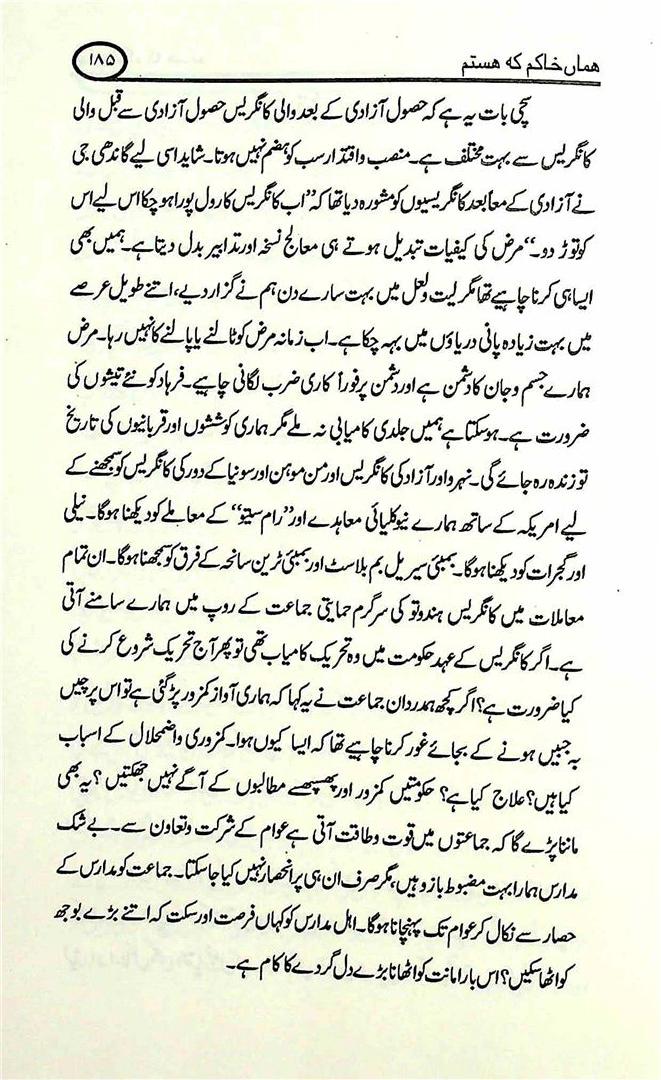 ۱۸۵
هماں خاکم که هستم
سچی بات یہ ہے کہ حصول آزادی کے بعد والی کانگریس حصول آزادی سے قبل والی
کانگریس سے بہت مختلف ہے۔ منصب و اقتدار سب کو ہضم نہیں ہوتا۔ شاید اسی لیے گاندھی جی
نے آزادی کے معاً بعد کانگریسیوں کو مشورہ دیا تھا کہ ”اب کانگریس کا رول پورا ہو چکا اس لیے اس
کو توڑ دو۔“ مرض کی کیفیات تبدیل ہوتے ہی معالج نسخہ اور تدابیر بدل دیتا ہے۔ ہمیں بھی
ایسا ہی کرنا چاہیے تھا مگر لیت و لعل میں بہت سارے دن ہم نے گزار دیے، اتنے طویل عرصے
میں بہت زیادہ پانی دریاؤں میں بہہ چکا ہے۔ اب زمانہ مرض کو ٹالنے یا پالنے کا نہیں رہا۔ مرض
ہمارے جسم و جان کا دشمن ہے اور دشمن پر فوراً کاری ضرب لگانی چاہیے۔ فرہاد کو نئے تیشوں کی
ضرورت ہے۔ ہو سکتا ہے ہمیں جلدی کامیابی نہ ملے مگر ہماری کوششوں اور قربانیوں کی تاریخ
تو زندہ رہ جائے گی۔ نہرو اور آزاد کی کانگریس اور من موہن اور سونیا کے دور کی کانگریس کو سمجھنے کے
لیے امریکہ کے ساتھ ہمارے نیوکلیائی معاہدے اور ”رام سیتو“ کے معاملے کو دیکھنا ہوگا۔ نیلی
اور گجرات کو دیکھنا ہوگا۔ بمبئی سیریل بم بلاسٹ اور بمبئی ٹرین سانحہ کے فرق کو سمجھنا ہوگا۔ ان تمام
معاملات میں کانگریس ہندوتو کی سرگرم حمایتی جماعت کے روپ میں ہمارے سامنے آتی
ہے۔ اگر کانگریس کے عہد حکومت میں وہ تحریک کامیاب تھی تو پھر آج تحریک شروع کرنے کی
کیا ضرورت ہے؟ اگر کچھ ہمدردان جماعت نے یہ کہا کہ ہماری آواز کمزور پڑ گئی ہے تو اس پر چیں
بہ جبیں ہونے کے بجائے غور کرنا چاہیے تھا کہ ایسا کیوں ہوا۔ کمزوری و اضمحلال کے اسباب
کیا ہیں؟ علاج کیا ہے؟ حکومتیں کمزور اور پھسپھسے مطالبوں کے آگے نہیں جھکتیں؟ یہ بھی
ماننا پڑے گا کہ جماعتوں میں قوت و طاقت آتی ہے عوام کے شرکت و تعاون سے۔ بے شک
مدارس ہمارا بہت مضبوط بازو ہیں، مگر صرف ان ہی پر انحصار نہیں کیا جا سکتا۔ جماعت کو مدارس کے
حصار سے نکال کر عوام تک پہنچانا ہوگا۔ اہل مدارس کو کہاں فرصت اور سکت کہ اتنے بڑے بوجھ
کو اٹھا سکیں؟ اس بار امانت کو اٹھانا بڑے دل گردے کا کام ہے۔